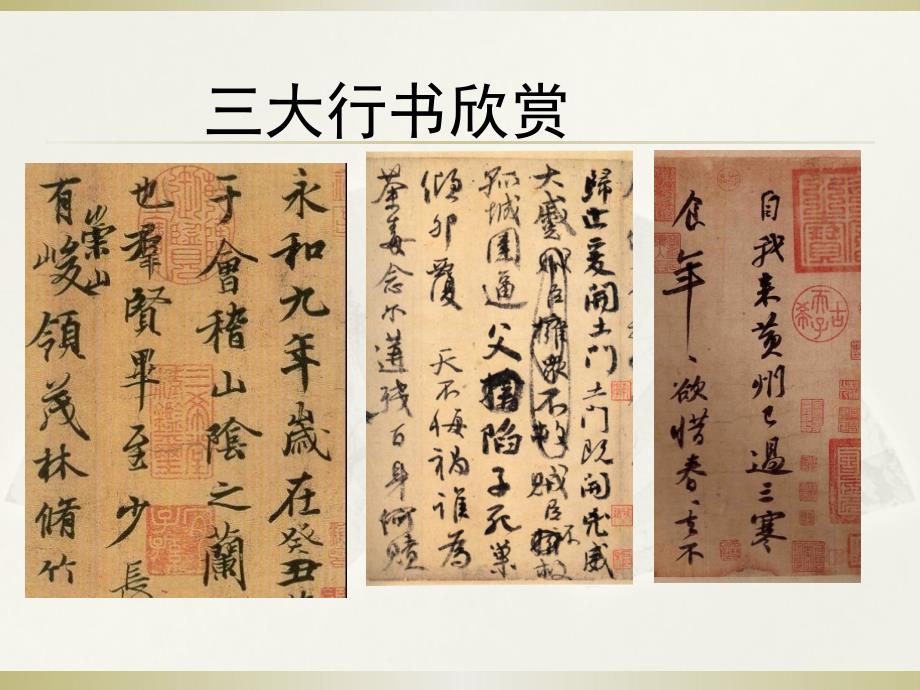 三大行书欣赏
永和九年歲在癸丑
于會稽山陰之蘭
也羣賢畢至少長
有崇山峻領茂林脩竹
歸止爰開土門土門既開凶威
大蹙賊臣擁衆不救賊臣不救
孤城圍逼父陷子死巢
傾卵覆天不悔禍誰為
荼毒念爾遘殘百身何贖
自我來黃州已過三寒
食年〻欲惜春〻去不